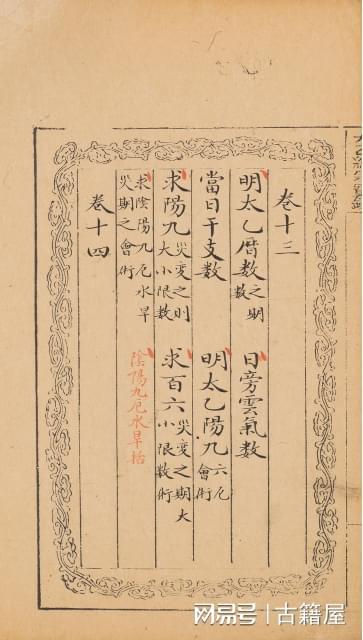 卷十三
明太乙暦數之明數　日旁雲氣數
當日干支數　明太乙陽九六厄會術
求陽九災變之則大小限數　求百六災變之期大小限數術
求陰陽九厄水旱災期之會術　陰陽九厄水旱拾
卷十四
网易号 | 古籍屋